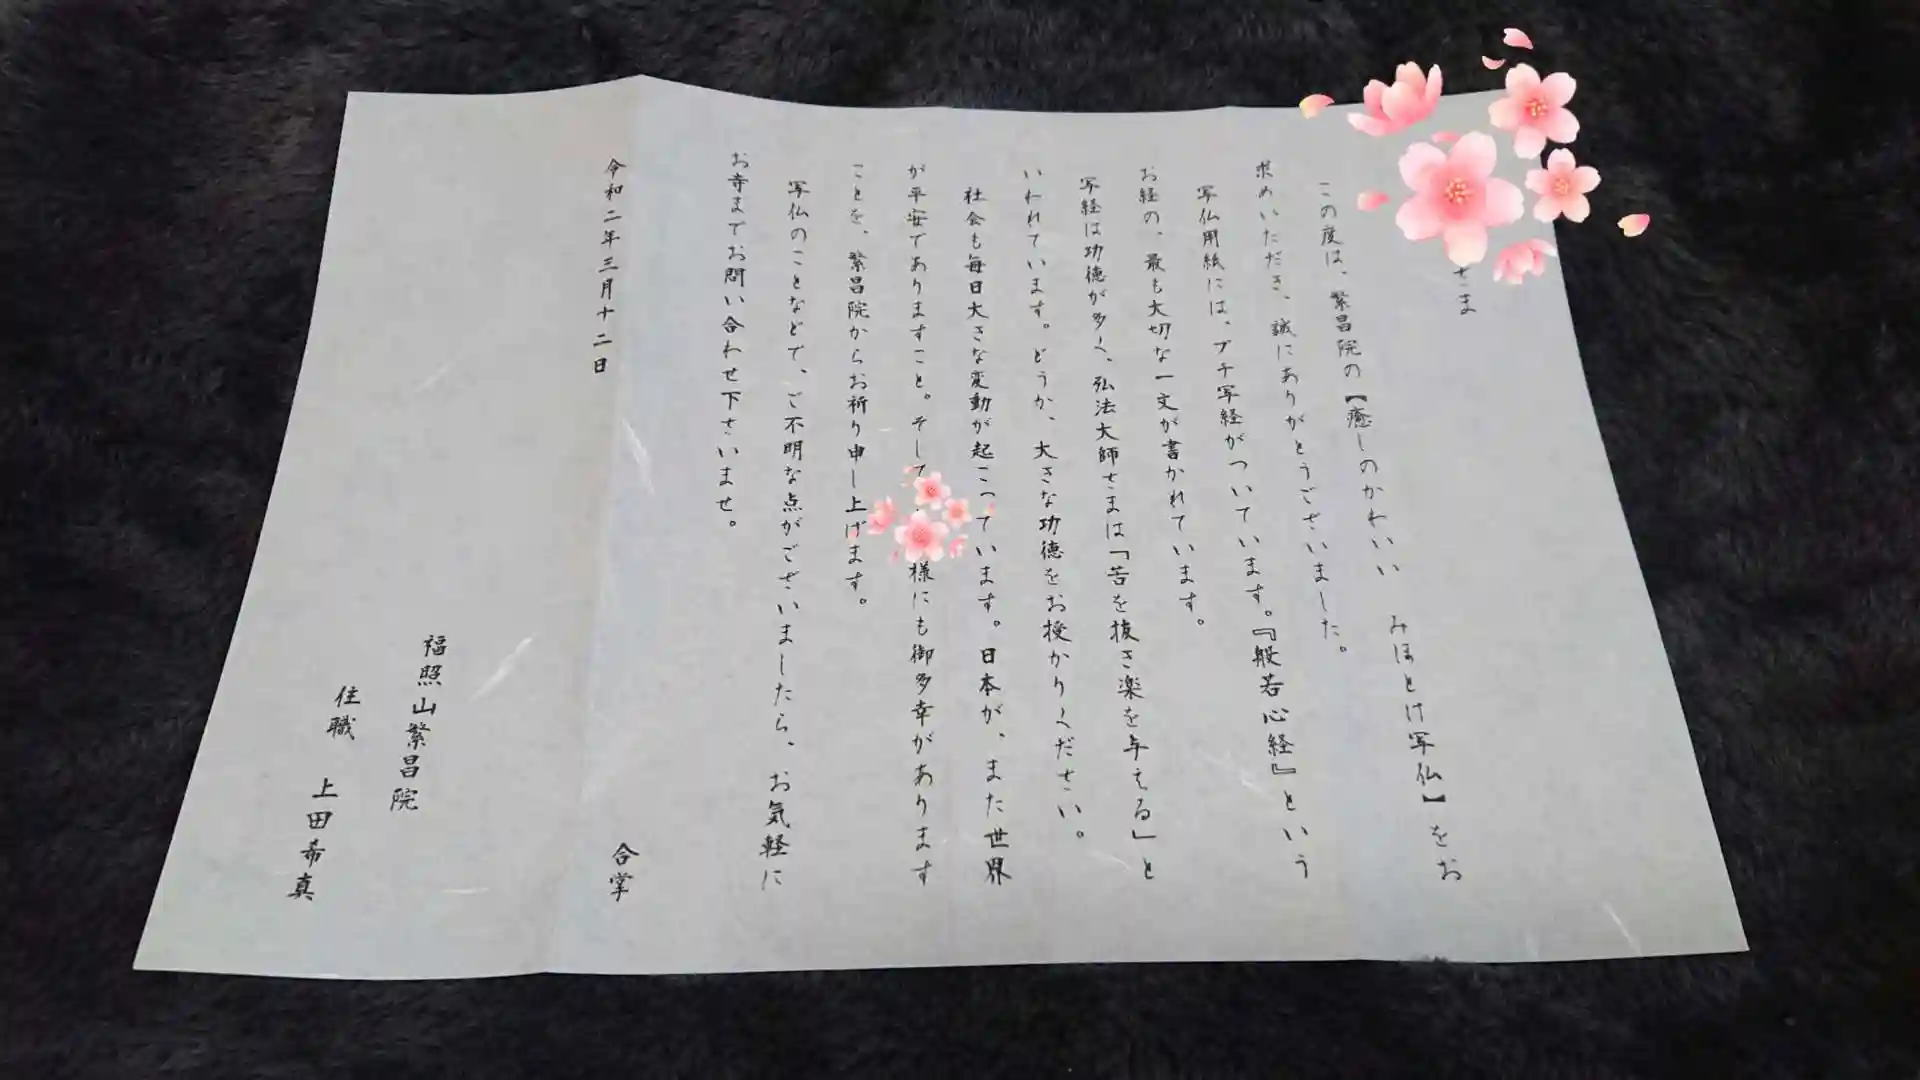 さま
この度は、繁昌院の【癒しのかわいい みほとけ写仏】をお
求めいただき、誠にありがとうございました。
写仏用紙には、プチ写経がついています。『般若心経』という
お経の、最も大切な一文が書かれています。
写経は功徳が多く、弘法大師さまは「苦を抜き楽を与える」と
いわれています。どうか、大きな功徳をお授かりください。
社会も毎日大きな変動が起こっています。日本が、また世界
が平安でありますこと。そして 様にも御多幸があります
ことを、繁昌院からお祈り申し上げます。
写仏のことなどで、ご不明な点がございましたら、お気軽に
お寺までお問い合わせ下さいませ。
合掌
令和二年三月十二日
福照山繁昌院
住職 上田希真